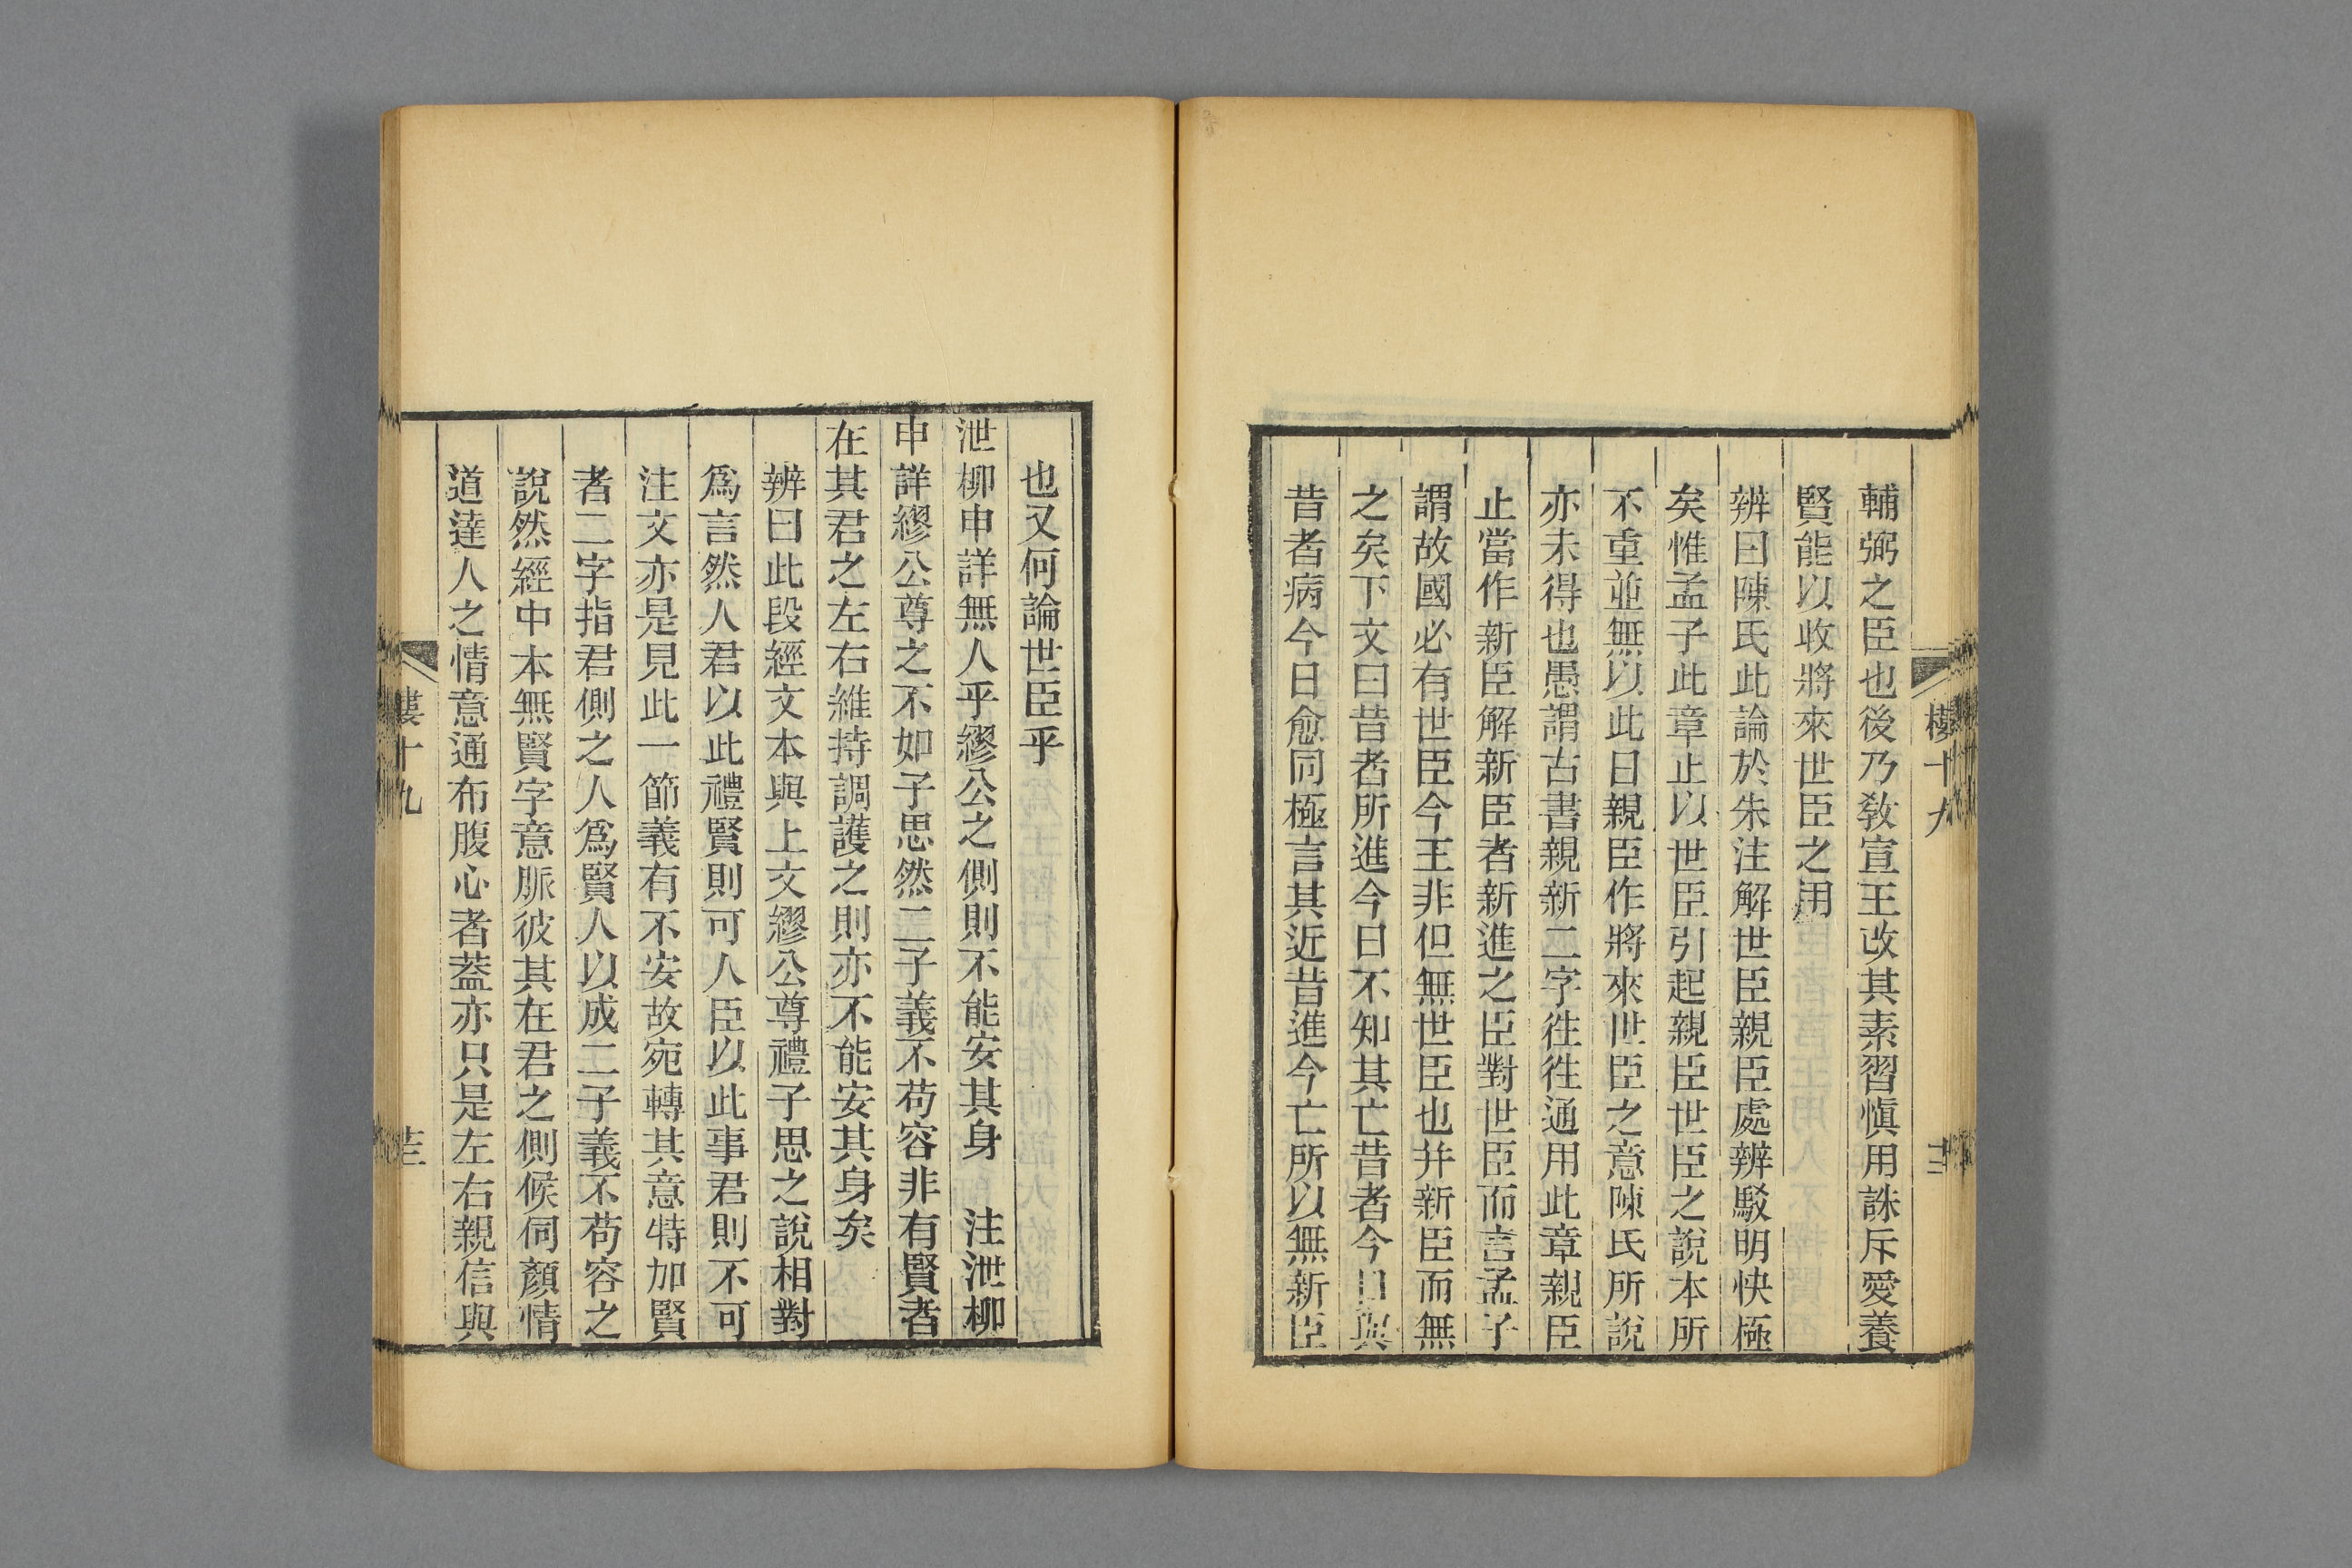 樓十九
十二
輔弼之臣也後乃敎宣王改其素習愼用誅斥愛養
賢能以收將來世臣之用
辨曰陳氏此論於朱注解世臣親臣處辨駁明快極
矣惟孟子此章止以世臣引起親臣世臣之說本所
不重並無以此日親臣作將來世臣之意陳氏所說
亦未得也愚謂古書親新二字徃徃通用此章親臣
止當作新臣解新臣者新進之臣對世臣而言孟子
謂故國必有世臣今王非但無世臣也幷新臣而無
之矣下文曰昔者所進今日不知其亡昔者今日與
昔者病今日愈同極言其近昔進今亡所以無新臣
也又何論世臣乎
泄柳申詳無人乎繆公之側則不能安其身　注泄柳
申詳繆公尊之不如子思然二子義不苟容非有賢者
在其君之左右維持調護之則亦不能安其身矣
辨曰此段經文本與上文繆公尊禮子思之說相對
爲言然人君以此禮賢則可人臣以此事君則不可
注文亦是見此一節義有不安故宛轉其意特加賢
者二字指君側之人爲賢人以成二子義不苟容之
說然經中本無賢字意脈彼其在君之側候伺顏情
道達人之情意通布腹心者葢亦只是左右親信與
樓十九